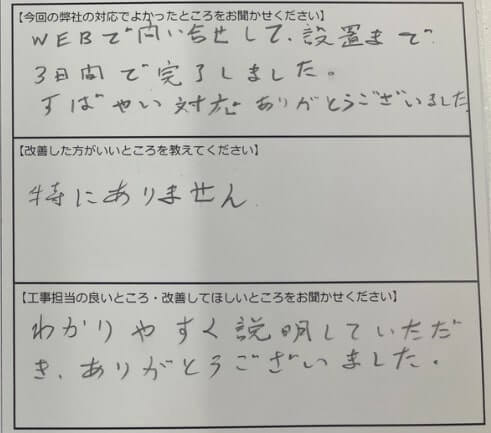 【今回の弊社の対応でよかったところをお聞かせください】
WEBで問い合せして、設置まで
3日間で完了しました。
すばやい対応ありがとうございました
【改善した方がいいところを教えてください】
特にありません
【工事担当の良いところ・改善してほしいところをお聞かせください】
わかりやすく説明していただ
き、ありがとうございました。